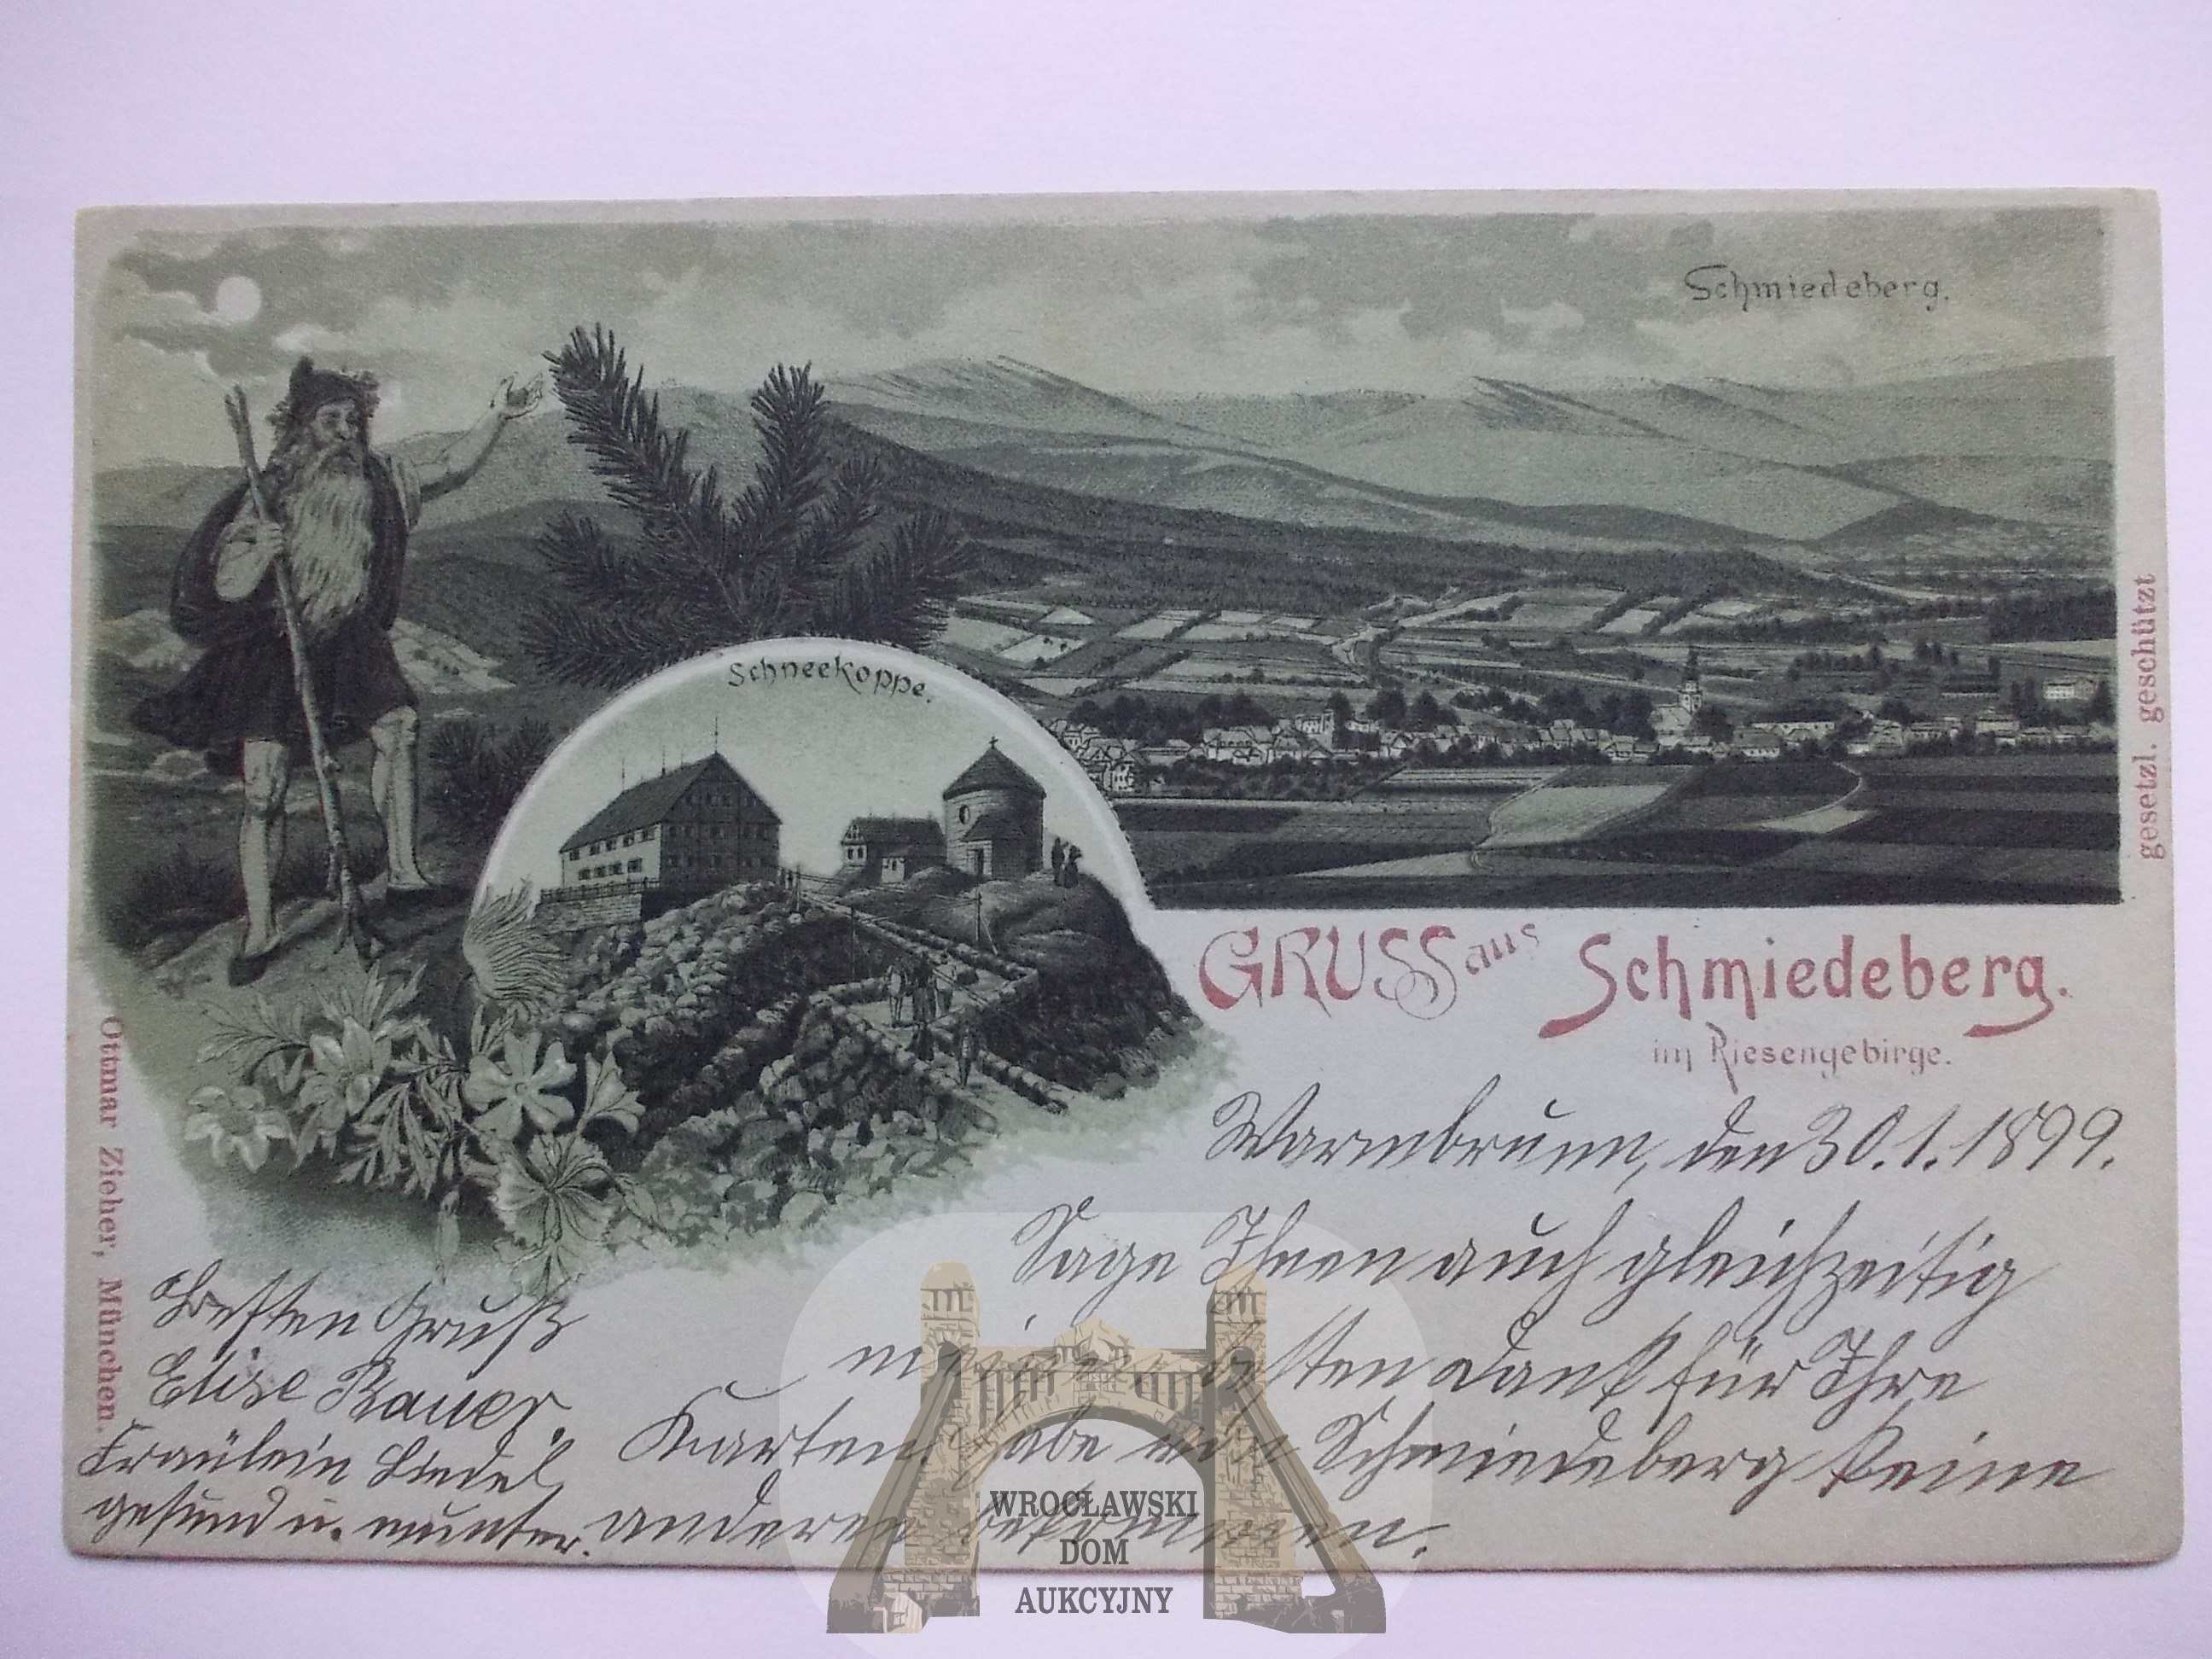 Schmiedeberg.
Schneekoppe.
gesetzl. geschützt
Gruss aus Schmiedeberg.
im Riesengebirge.
Ottmar Zieher, München.
Warmbrunn, den 30.1.1899.
Sage Ihnen auch gleichzeitig
meinen besten Dank für Ihre
Karten. Habe von Schmiedeberg keine
anderen bekommen.
Besten Gruß
Elise Bauer.
Fräulein Liedel
gesund u. munter.
WROCŁAWSKI
DOM
AUKCYJNY